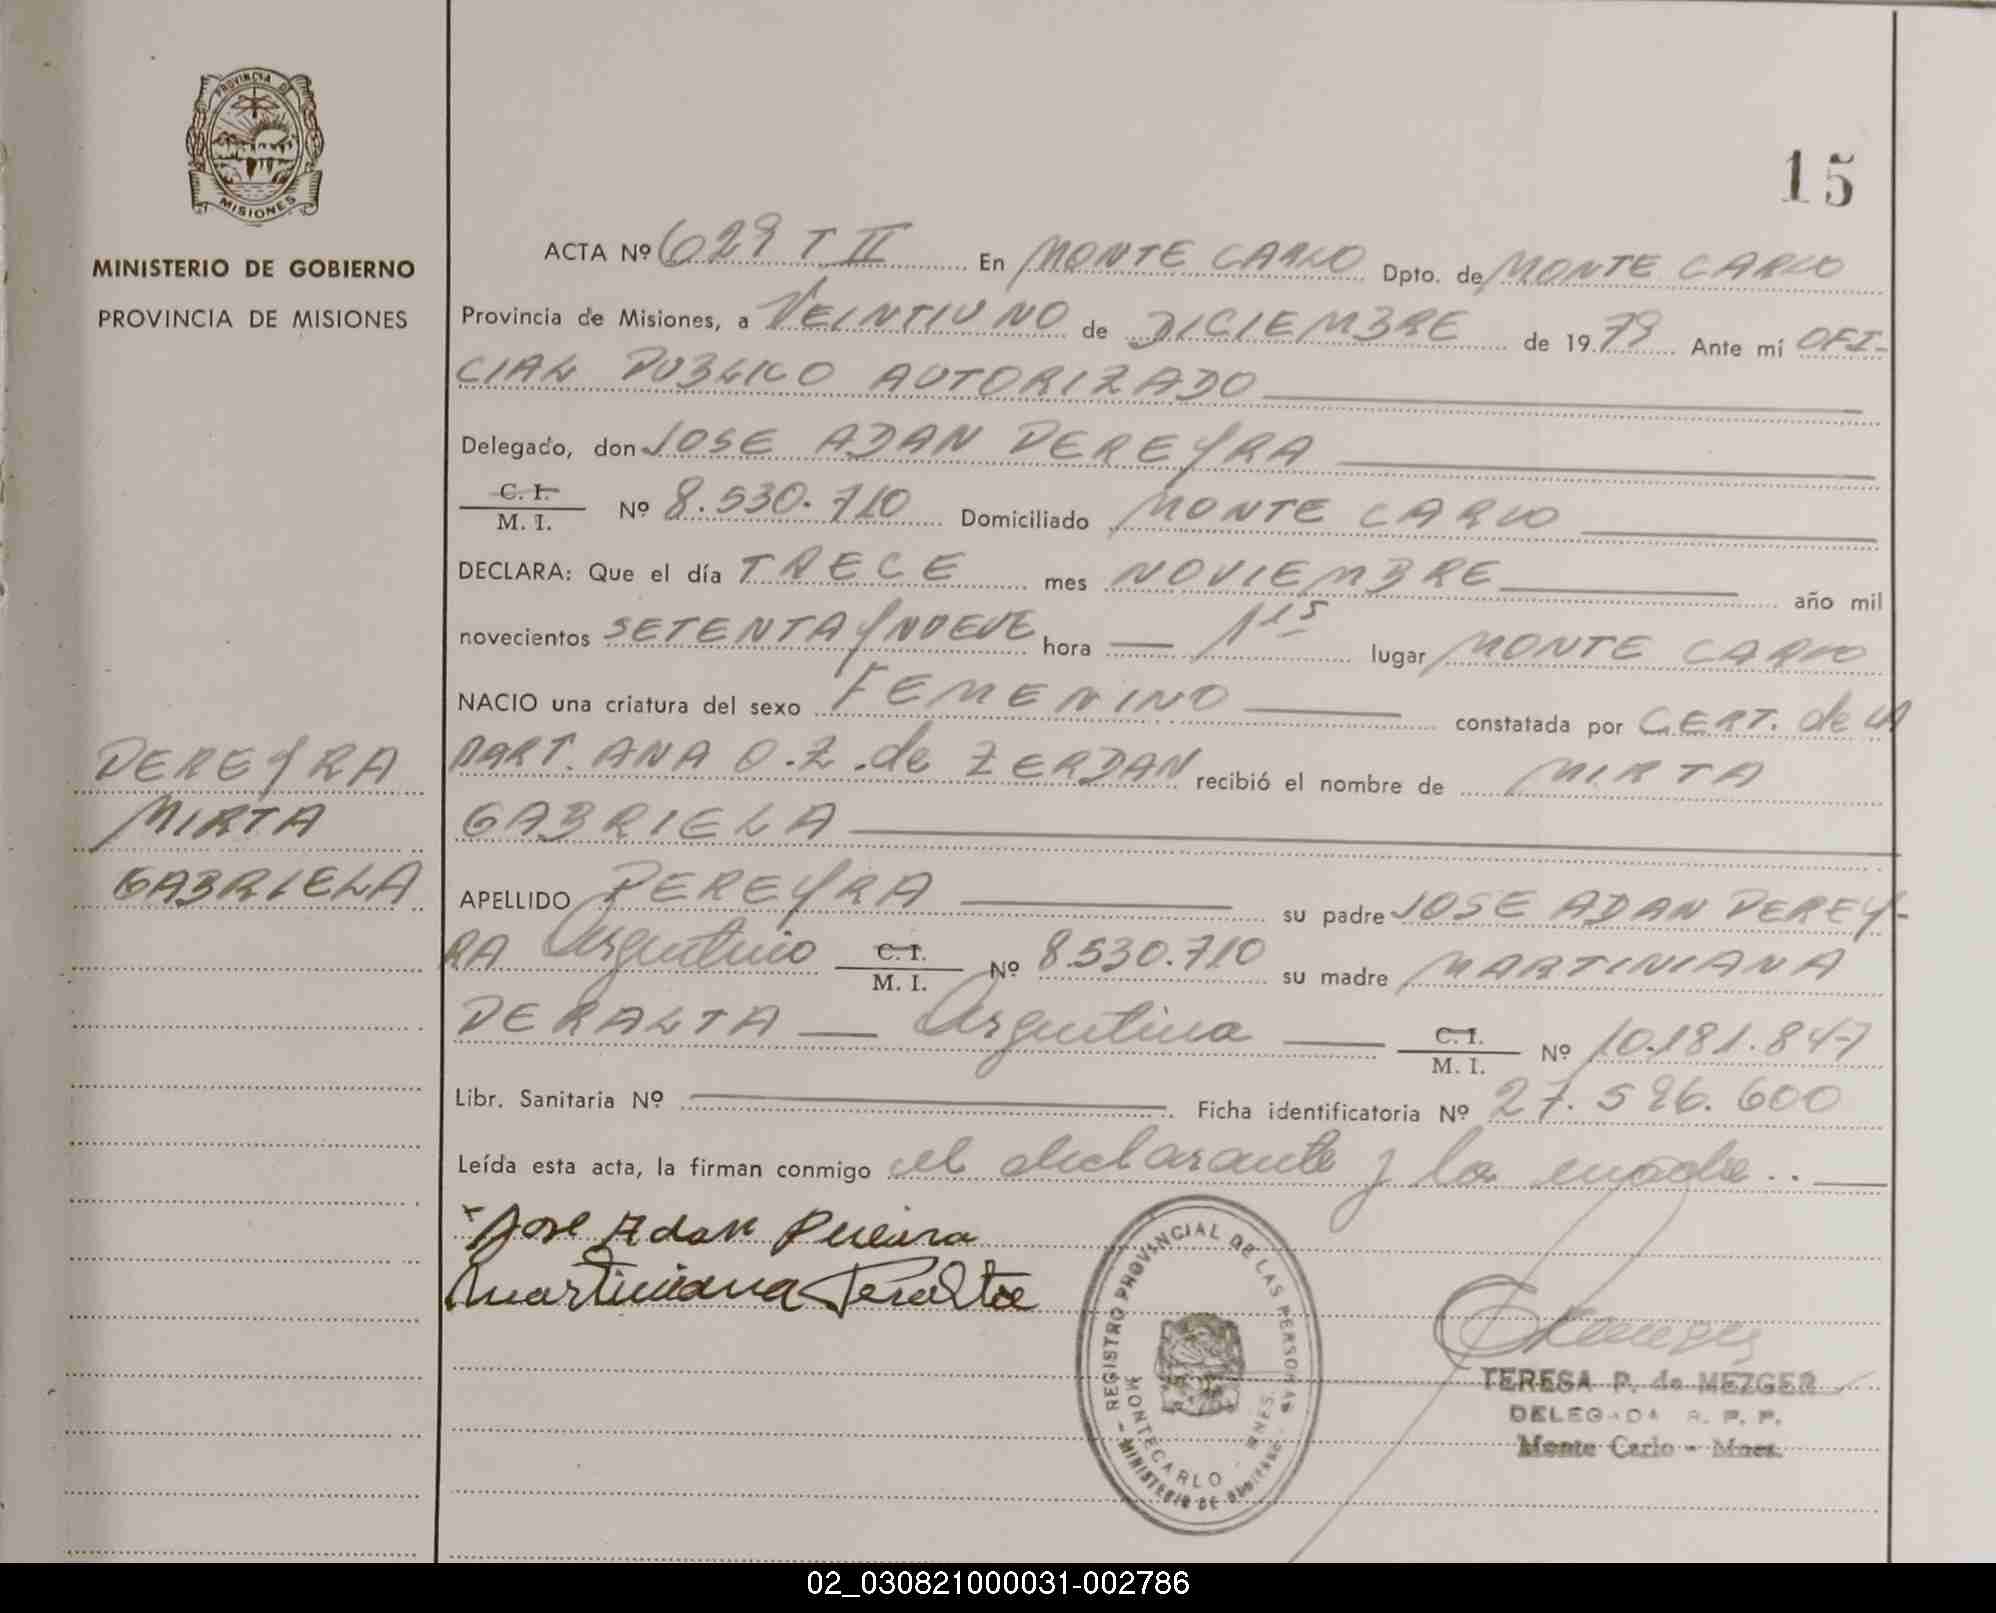 PROVINCIA DE
MISIONES
MINISTERIO DE GOBIERNO
PROVINCIA DE MISIONES
PEREYRA
MIRTA
GABRIELA
15
ACTA Nº 629 T II En MONTE CARLO Dpto. de MONTE CARLO
Provincia de Misiones, a VEINTIUNO de DICIEMBRE de 1979 Ante mí OFI-
CIAL PUBLICO AUTORIZADO
Delegado, don JOSE ADAN PEREYRA
C. I.
M. I. Nº 8.530.710 Domiciliado MONTE CARLO
DECLARA: Que el día TRECE mes NOVIEMBRE año mil
novecientos SETENTA Y NUEVE hora — 1 15 lugar MONTE CARLO
NACIO una criatura del sexo FEMENINO constatada por CERT. de LA
PART. ANA O. Z. de ZERDAN recibió el nombre de MIRTA
GABRIELA
APELLIDO PEREYRA su padre JOSE ADAN PEREY-
RA Argentino C. I. M. I. Nº 8.530.710 su madre MARTINIANA
PERALTA — Argentina — C. I. M. I. Nº 10.181.847
Libr. Sanitaria Nº Ficha identificatoria Nº 27.596.600
Leída esta acta, la firman conmigo el declarante y la madre..
x Jose Adan Pereira
Martiniana Peralta
REGISTRO PROVINCIAL DE LAS PERSONAS
MONTECARLO - MNES.
MINISTERIO DE GOBIERNO
TERESA P. de MEZGER
DELEGADA R. P. P.
Monte Carlo - Mnes.
02_030821000031-002786